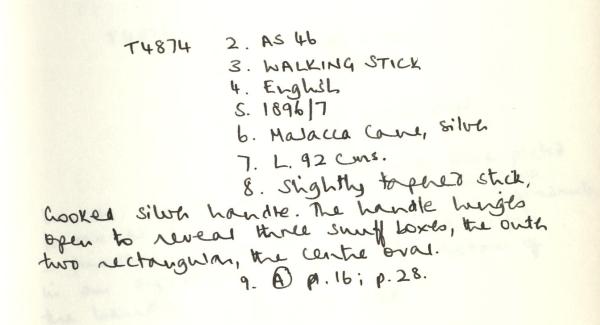 T4874 2. AS 46
3. WALKING STICK
4. English
5. 1896/7
6. Malacca Cane, silver
7. L. 92 cms.
8. Slightly tapered stick,
crooked silver handle. The handle hinges
open to reveal three snuff boxes, the outer
two rectangular, the centre oval.
9. Ⓐ pl. 16; p. 28.